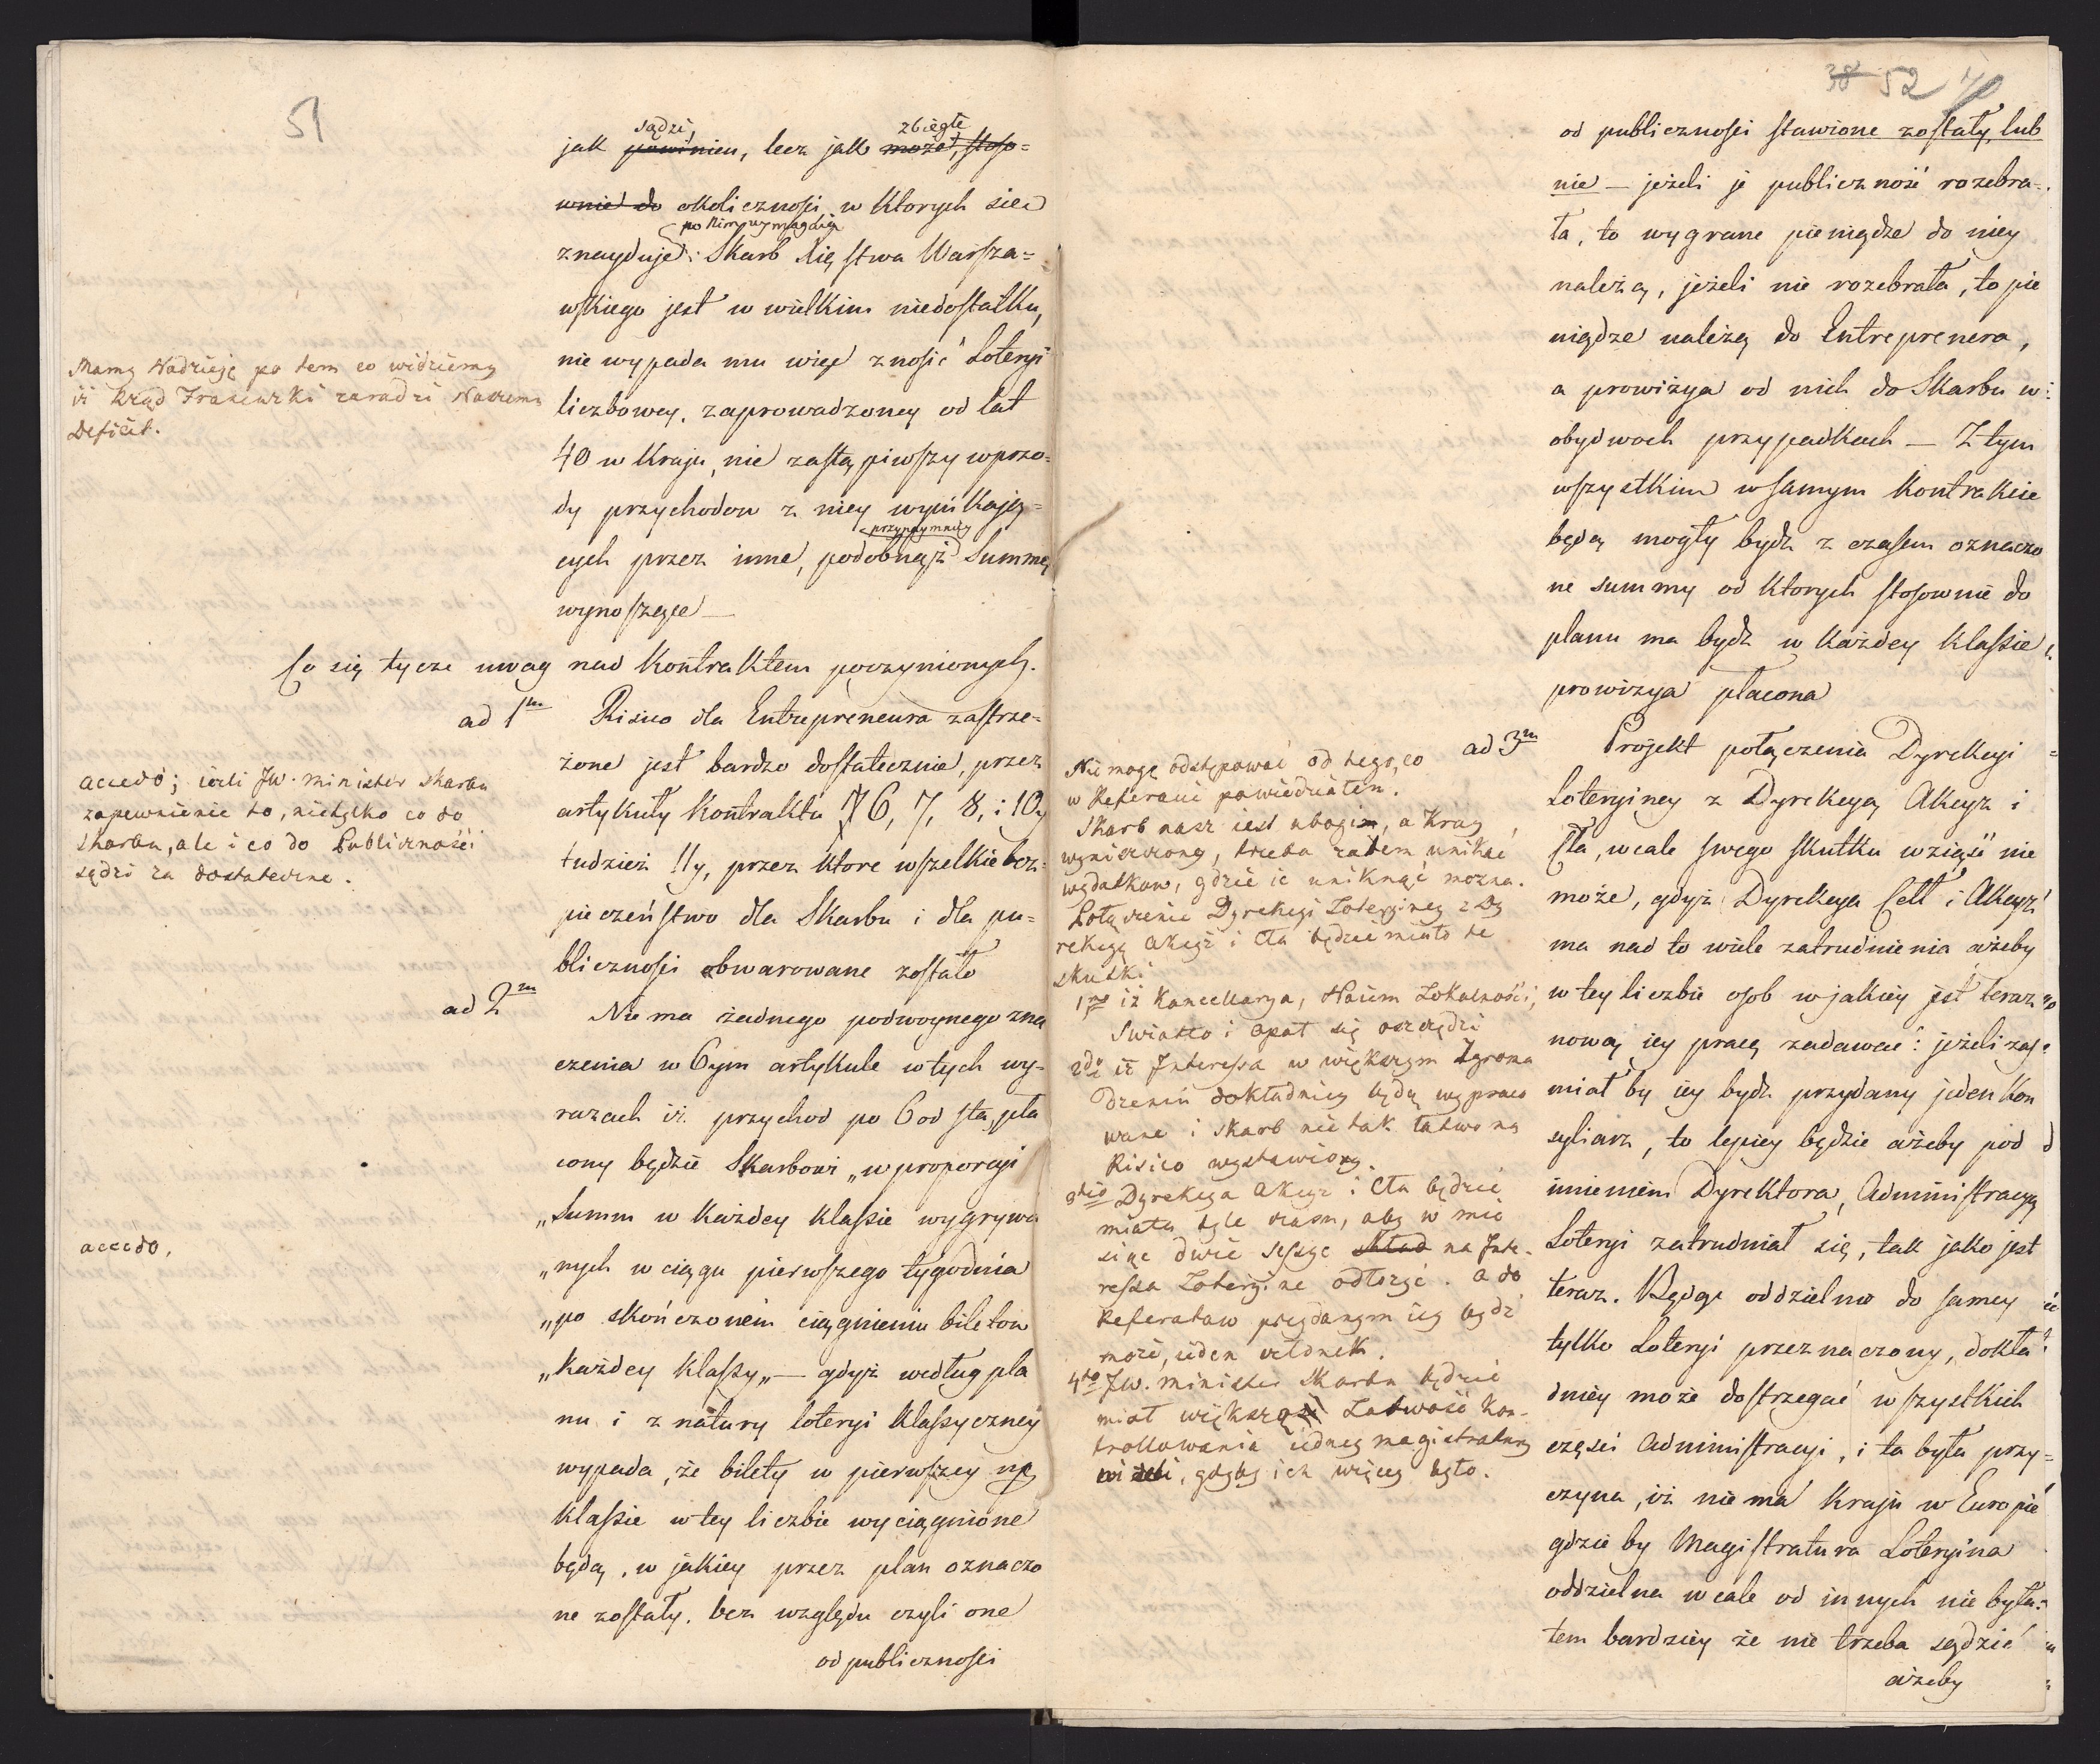 51
sądzi, zbiegłe
jak powinien, lecz jak może, stoso=
wnie do okoliczności w ktorych sie
po Nim wymagaią
znayduje: Skarb Xięstwa Warsza=
wskiego jest w wielkim niedostatku,
nie wypada mu więc znosić Loteryi
liczbowey, zaprowadzoney od lat
40 w Kraju, nie zastąpiwszy wprzo=
dy przychodow z niey wynikają=
przynaymniey
cych przez inne, podobnąż Summę
wynoszące —
Mamy Nadzieję po tem co widziemy
iż Rząd Francuzki zaradzi Naszemu
Deficit.
Co się tycze uwag nad Kontraktem poczynionych.
ad 1m Risico dla Entrepreneura zastrze=
żone jest bardzo dostatecznie, przez
artykuły Kontraktu 6, 7, 8, i 10y
tudzież 11y, przez ktore wszelkie bez=
pieczeństwo dla Skarbu i dla pu=
bliczności obwarowane zostało
accedo; ieżli JW. minister skarbu
zapewnienie to, nietylko co do
skarbu, ale i co do Publiczności
sądzi za dostateczne.
ad 2m Nie ma żadnego podwoynego zna
czenia w 6ym artykule w tych wy=
razach iż przychod po 6 od sta, pła
cony będzie Skarbowi „w proporcyi
„Summ w każdey klassie wygrywa
„nych w ciągu pierwszego tygodnia
„po skończonem ciągnieniu biletow
„każdey klassy„ — gdyż według pla
nu i z natury loteryi klassyczney
wypada, że bilety w pierwszey np
klassie w tey liczbie wyciągnione
będą, w jakiey przez plan oznaczo
ne zostały, bez względu czyli one
od publiczności
accedo,
38 52
od publiczności stawione zostały, lub
nie — jeżeli je publiczność rozebra=
ła, to wygrane pieniądze do niey
należą, jeżeli nie rozebrała, to pie
niądze należą do Entreprenera,
a prowizya od nich do Skarbu w
obydwoch przypadkach — Z tym
wszystkim w samym kontrakcie
będą mogły bydź z czasem oznaczo
ne summy od ktorych stosownie do
planu ma bydź w każdey klassie
prowizya płacona
ad 3m Projekt połączenia Dyrekcyi
Loteryiney z Dyrekcyą Akcyz i
Cła, wcale swego skutku wziąść nie
może, gdyż Dyrekcya Ceł i Akcyz
ma nad to wiele zatrudnienia ażeby
w tey liczbie osob w jakiey jest teraz
nową iey pracę zadawać: jeżeli zaś
miał by iey bydź przydany jeden Kon
syliarz, to lepiey będzie ażeby pod
imieniem Dyrektora, Administracyą
Loteryi zatrudniał się, tak jako jest
teraz. Będąc oddzielnie do samey
tylko Loteryi przeznaczony, dokła
dniey może dostrzegać wszystkich
części Administracyi, i ta była przy=
czyna, iż nie ma kraju w Europie
gdzie by Magistratura Loteryina
oddzielna wcale od innych nie była:
tem bardziey że nie trzeba sądzić
ażeby
Nie mogę odstępować od tego, co
w Referacie powiedziałem.
Skarb nasz iest ubogi, a Kray
wyniszczony, trzeba zatem unikać
wydatkow, gdzie ie uniknąć można.
Połączenie Dyrekcyi Loteryiney z Dy
rekcyą Akcyz i Cła będzie miało te
skutki
1mo iż Kancellarya, Naiem Lokalności,
Swiatło i Opał się oszczędzi
2do iż Interessa w większym Zgroma
dzeniu dokładniey będą wypraco
wane i skarb nie tak łatwo na
Risico wystawiony.
3tio Dyrekcya Akcyz i Cła będzie
miała tyle czasu, aby w mie
siąc dwie sessye na Inte=
ressa Loteryine odłożyć. a do
Referatow przydanym iey bydź
może, ieden członek.
4to JW. minister skarbu będzie
miał większą Łatwość kon=
trollowania iedney magistratury
niżeli, gdyby ich więcey było.